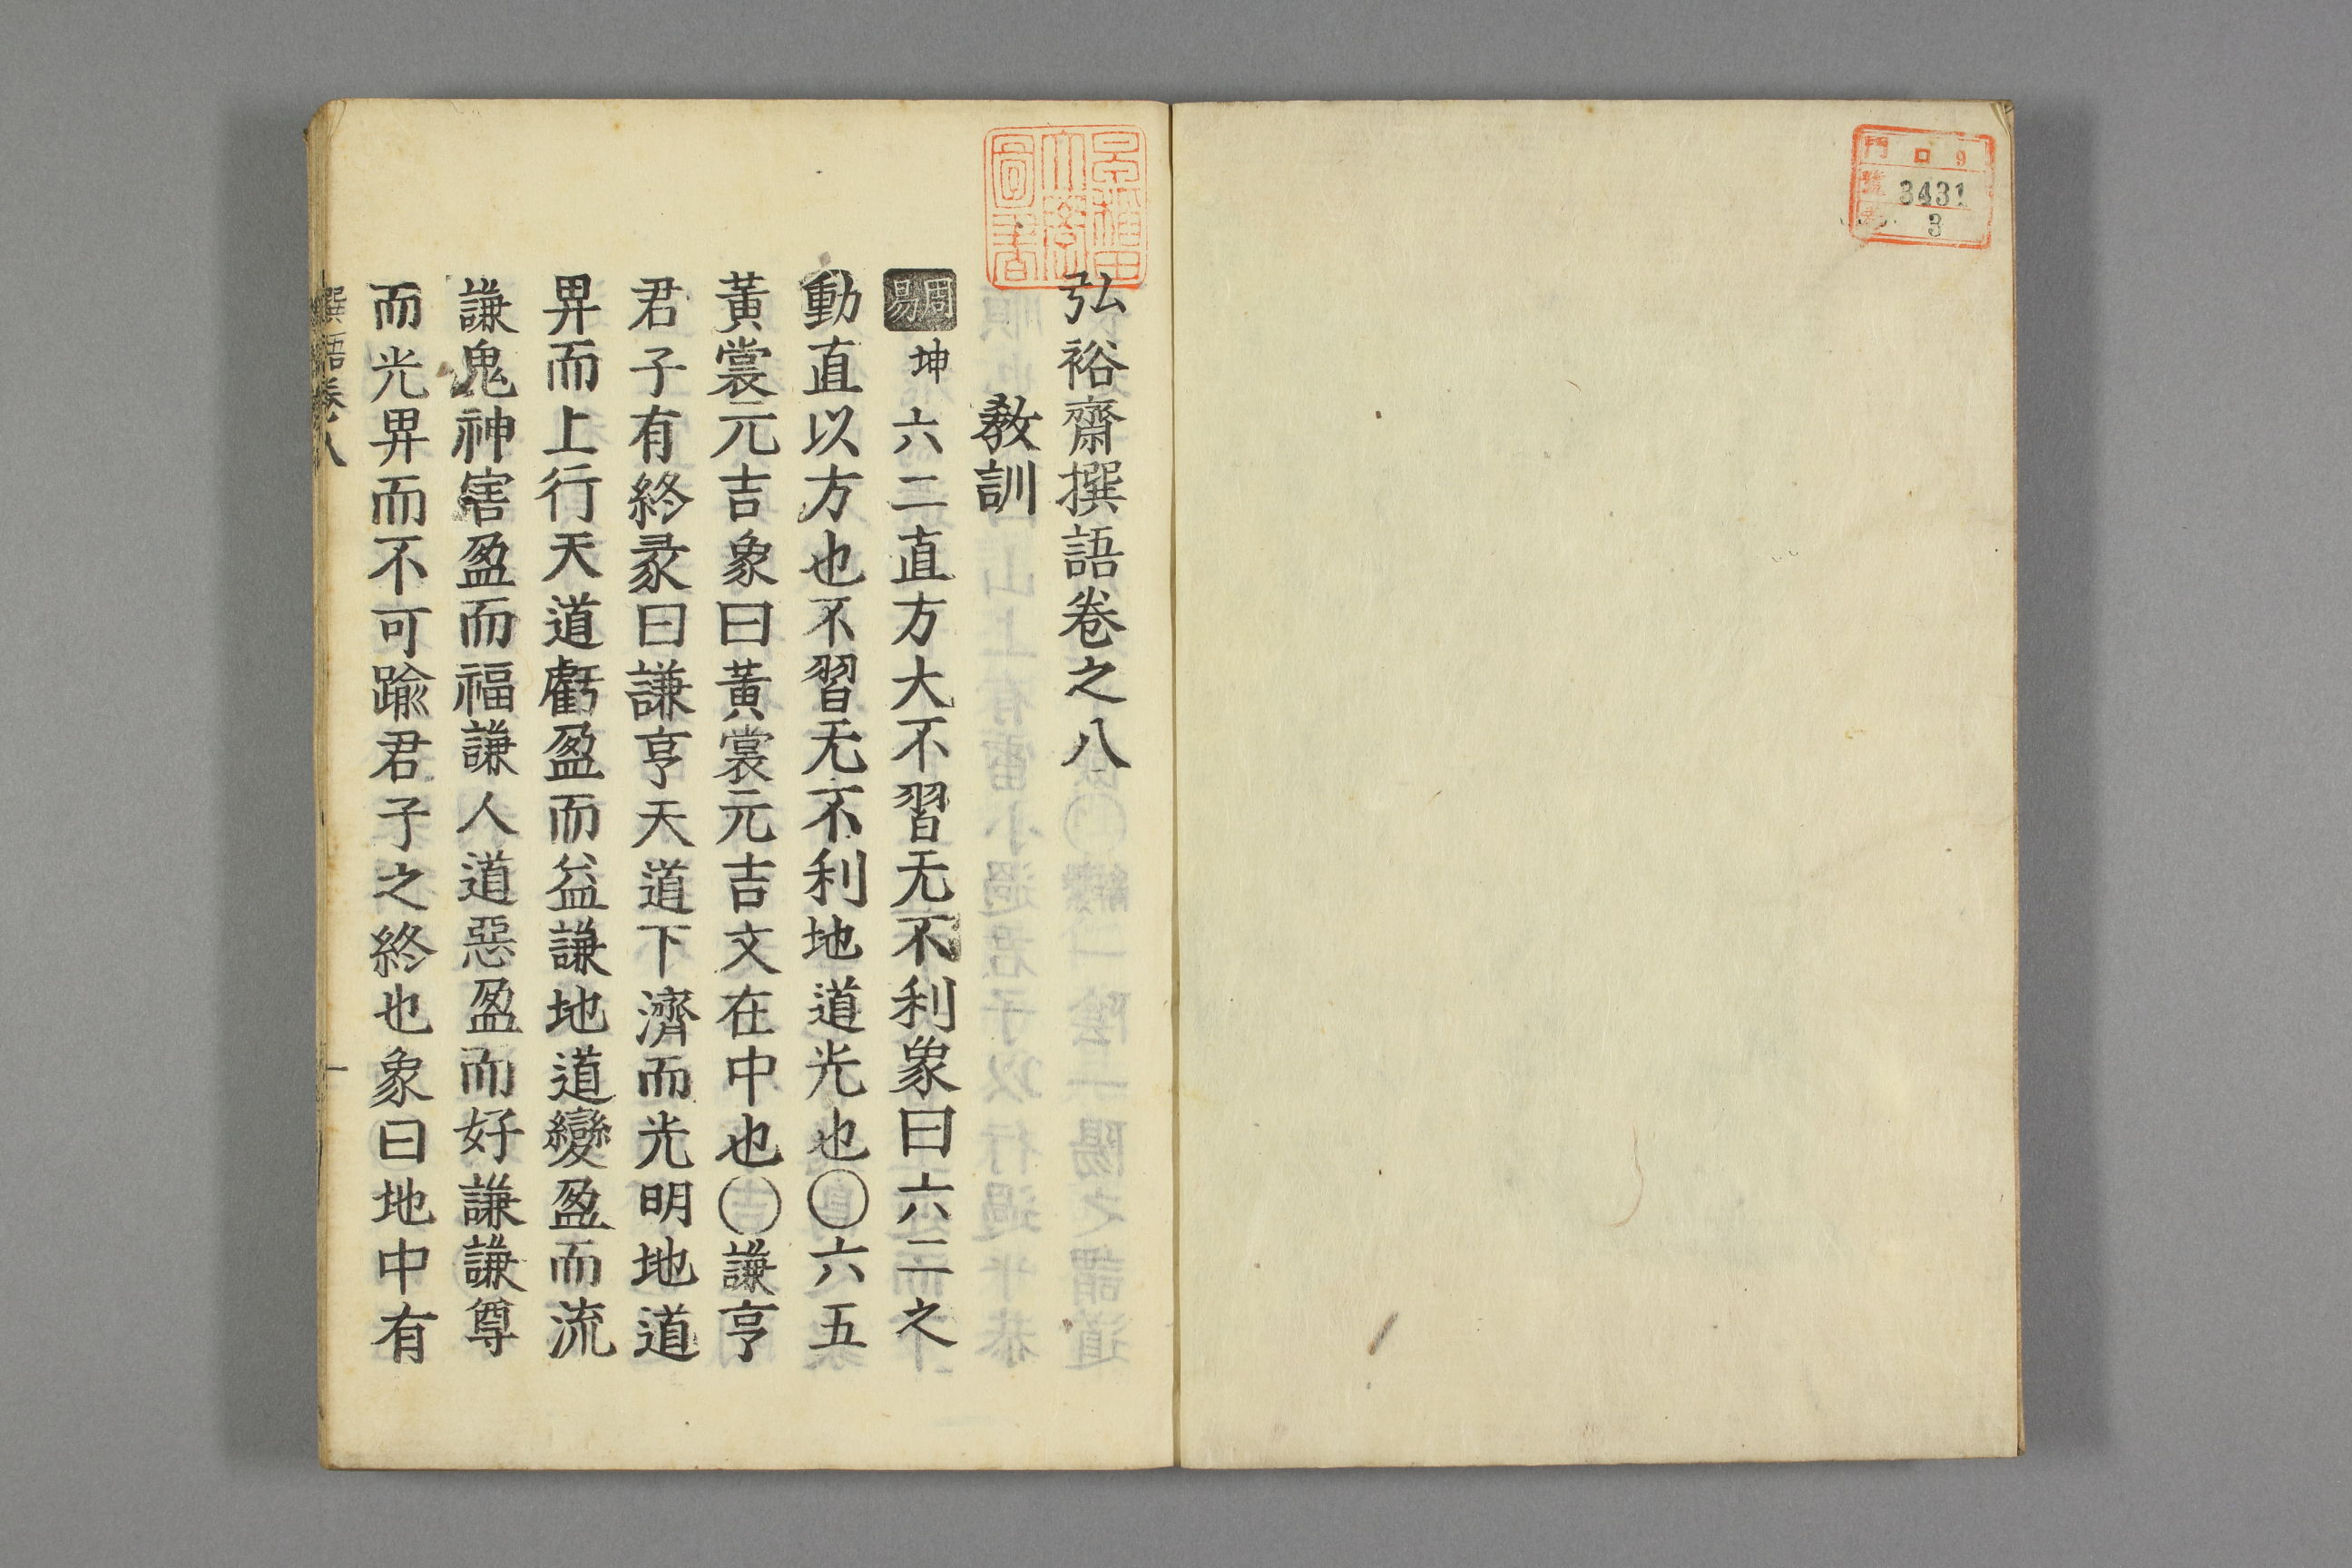 門 ロ 9
號 3431
3
弘裕齋撰語卷之八
教訓
周易 坤 六二直方大不習无不利象曰六二之
動直以方也不習无不利地道光也〇六五
黃裳元吉象曰黃裳元吉文在中也〇謙亨
君子有終彖曰謙亨天道下濟而光明地道
畀而上行天道虧盈而益謙地道變盈而流
謙鬼神害盈而福謙人道惡盈而好謙謙尊
而光畀而不可踰君子之終也象曰地中有
撰語卷八
一